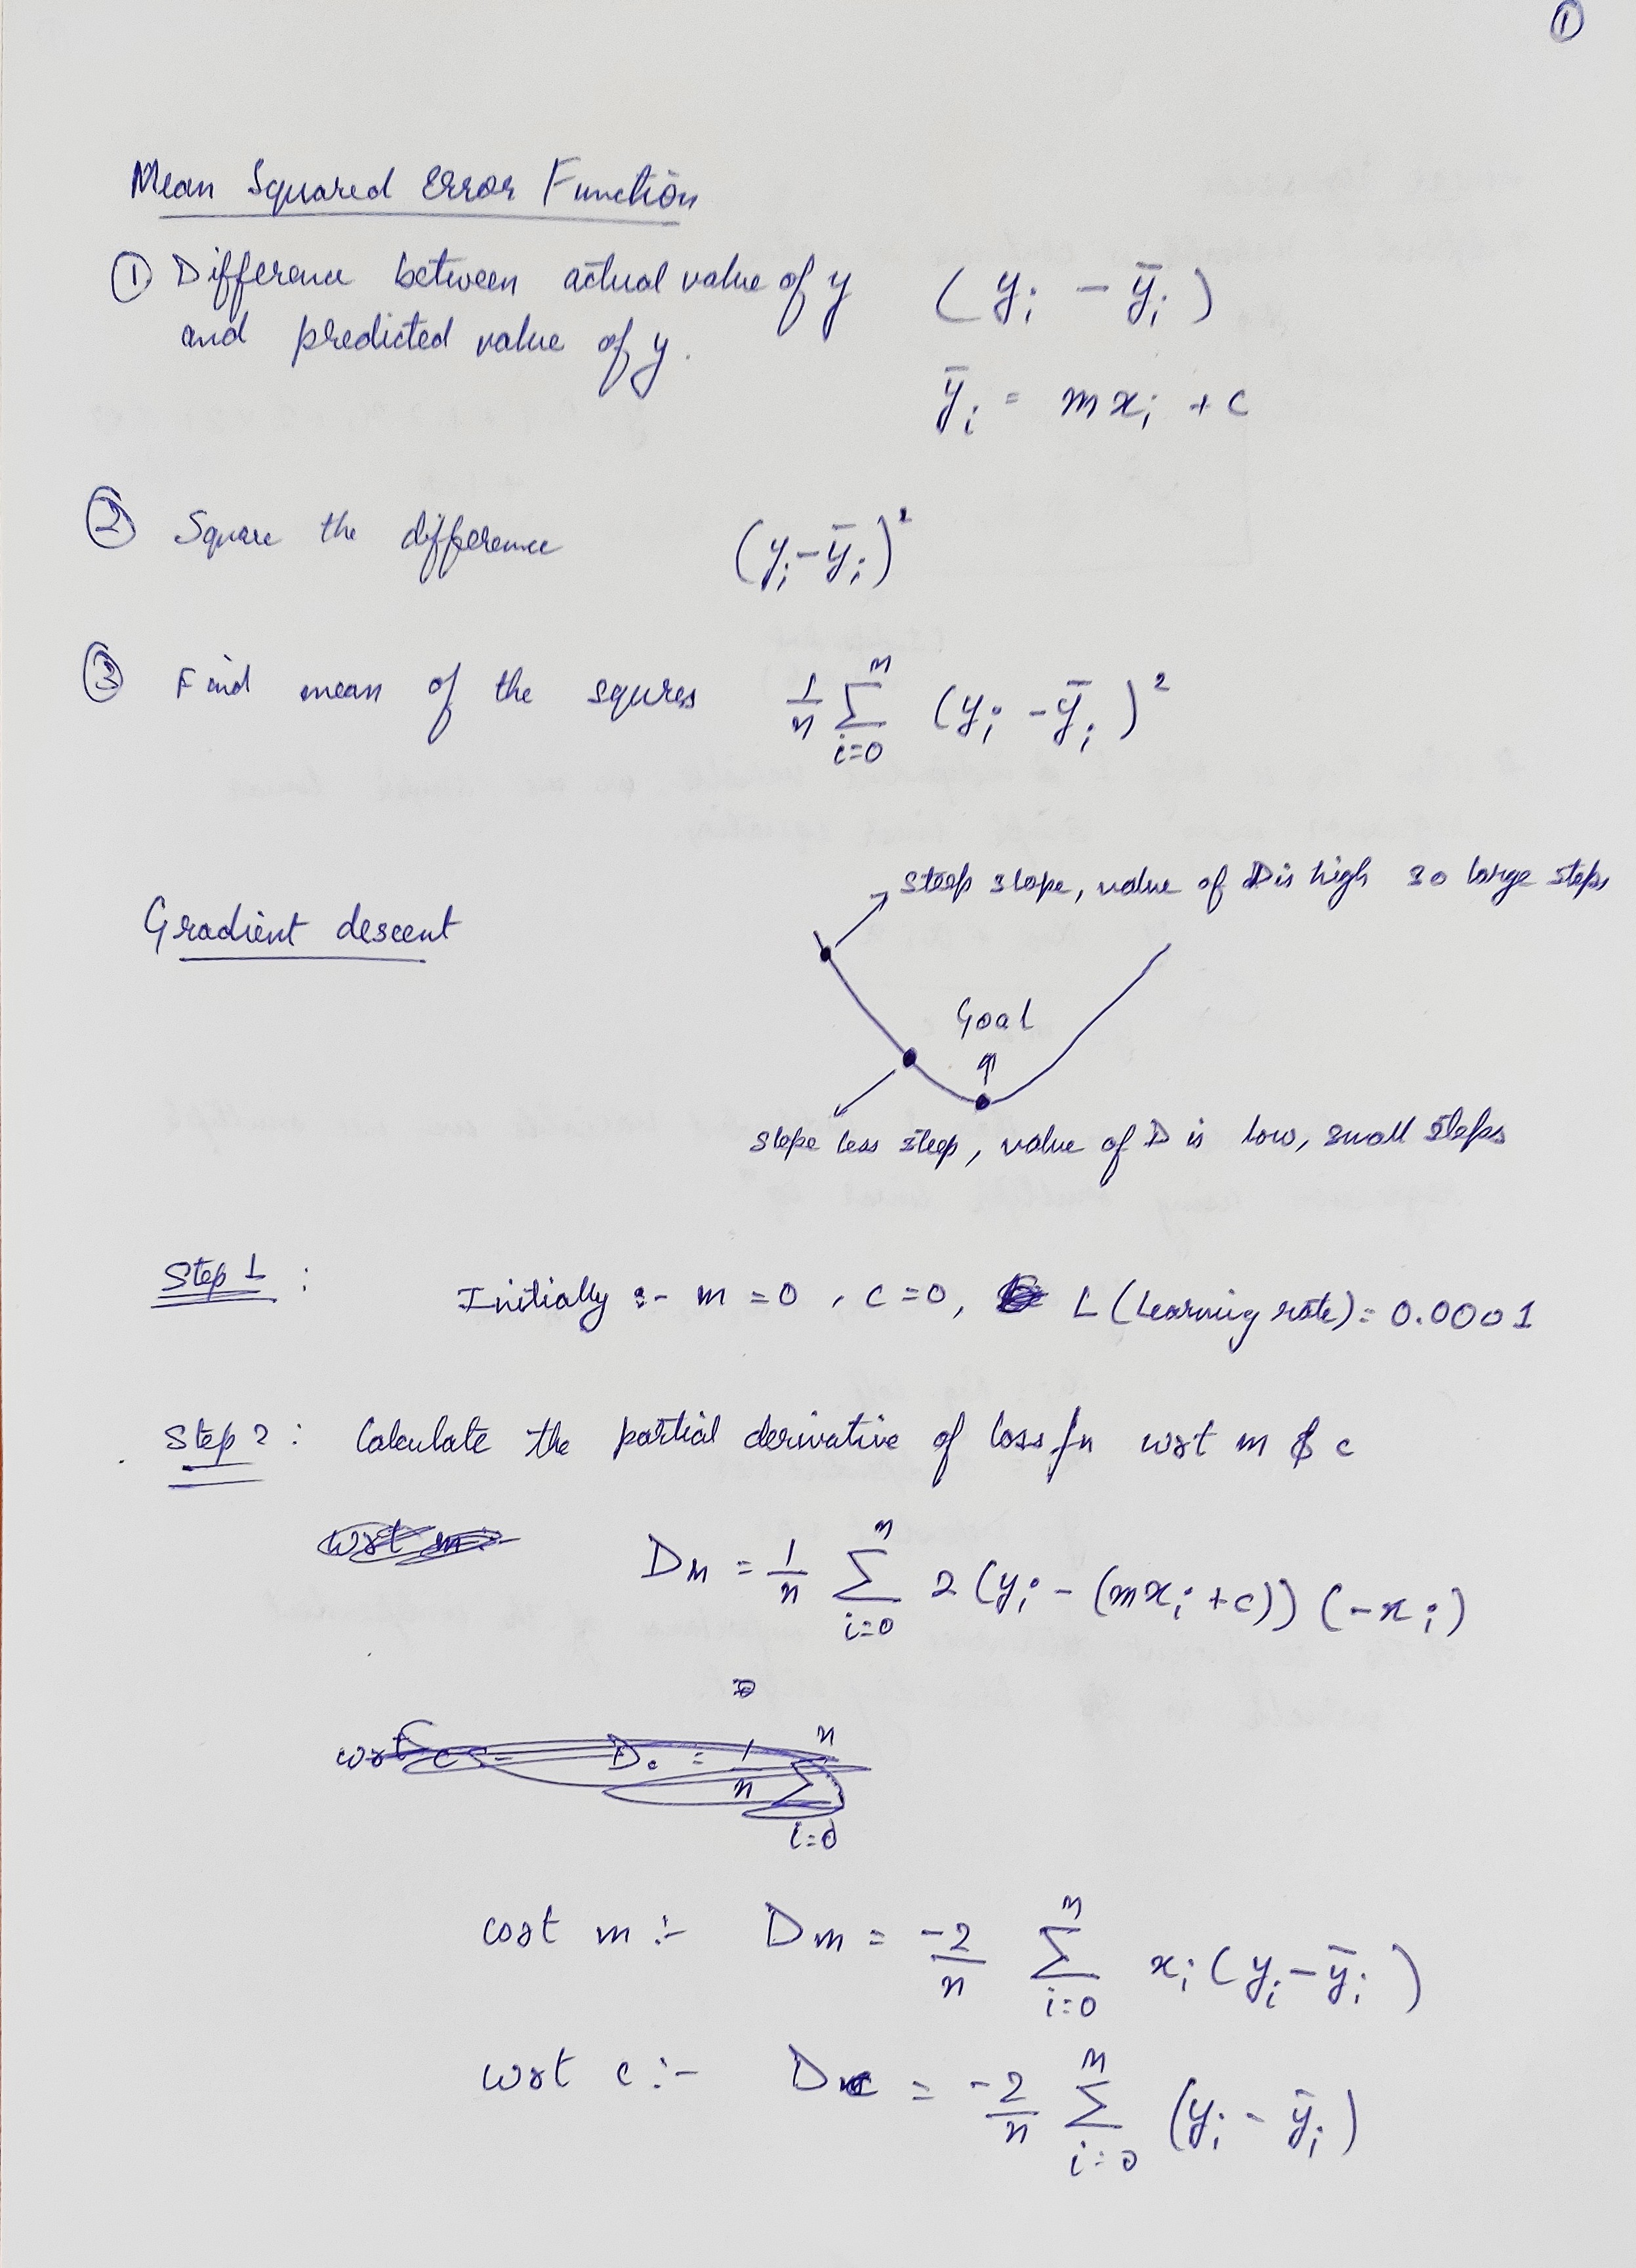 ①
Mean Squared Error Function
① Difference between actual value of y (yᵢ - ȳᵢ)
and predicted value of y.
ȳᵢ = mxᵢ + c
② Square the difference (yᵢ - ȳᵢ)²
③ Find mean of the squres 1/n Σ_{i=0}^{n} (yᵢ - ȳᵢ)²
Steep slope, value of D is high so large steps
Gradient descent
Goal
Slope less steep, value of D is low, small steps
Step 1 : Initially :- m = 0, c = 0, L (Learning rate) = 0.0001
Step 2 : Calculate the partial derivative of loss fn wrt m & c
wrt m :-
Dm = 1/n Σ_{i=0}^{n} 2 (yᵢ - (mxᵢ + c)) (-xᵢ)
wrt c :- Dc = 1/n Σ_{i=0}^{n}
wrt m :- Dm = -2/n Σ_{i=0}^{n} xᵢ (yᵢ - ȳᵢ)
wrt c :- Dc = -2/n Σ_{i=0}^{n} (yᵢ - ȳᵢ)